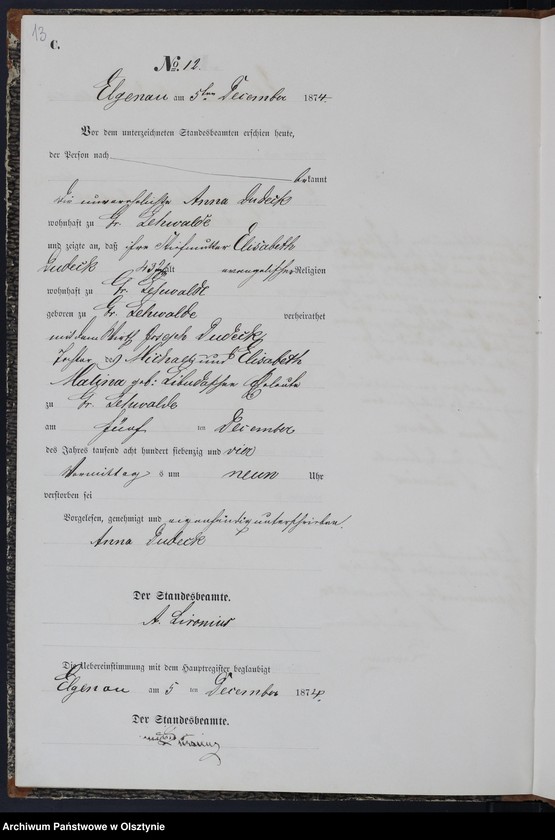 13
C.
No. 12.
Elgenau am 5ten December 1874
Vor dem unterzeichneten Standesbeamten erschien heute,
der Person nach
bekannt
die unverehelichte Anna Dudeck
wohnhaft zu Gr. Lehwalde
und zeigte an, daß ihre Stiefmutter Elisabeth
Dudeck alt evangelischer Religion
wohnhaft zu Gr. Lehwalde
geboren zu Gr. Lehwalde verheirathet
mit dem Wirth Joseph Dudeck,
Tochter des Michael und Elisabeth
Malina geb: Eheleute
zu Gr. Lehwalde
am fünf ten December
des Jahres tausend acht hundert siebenzig und vier
Vormittag s um neun Uhr
verstorben sei
Vorgelesen, genehmigt und eigenhändig unterschrieben.
Anna Dudeck
Der Standesbeamte.
A. Lironius
Die Uebereinstimmung mit dem Hauptregister beglaubigt
Elgenau am 5 ten December 1874.
Der Standesbeamte.
Archiwum Państwowe w Olsztynie